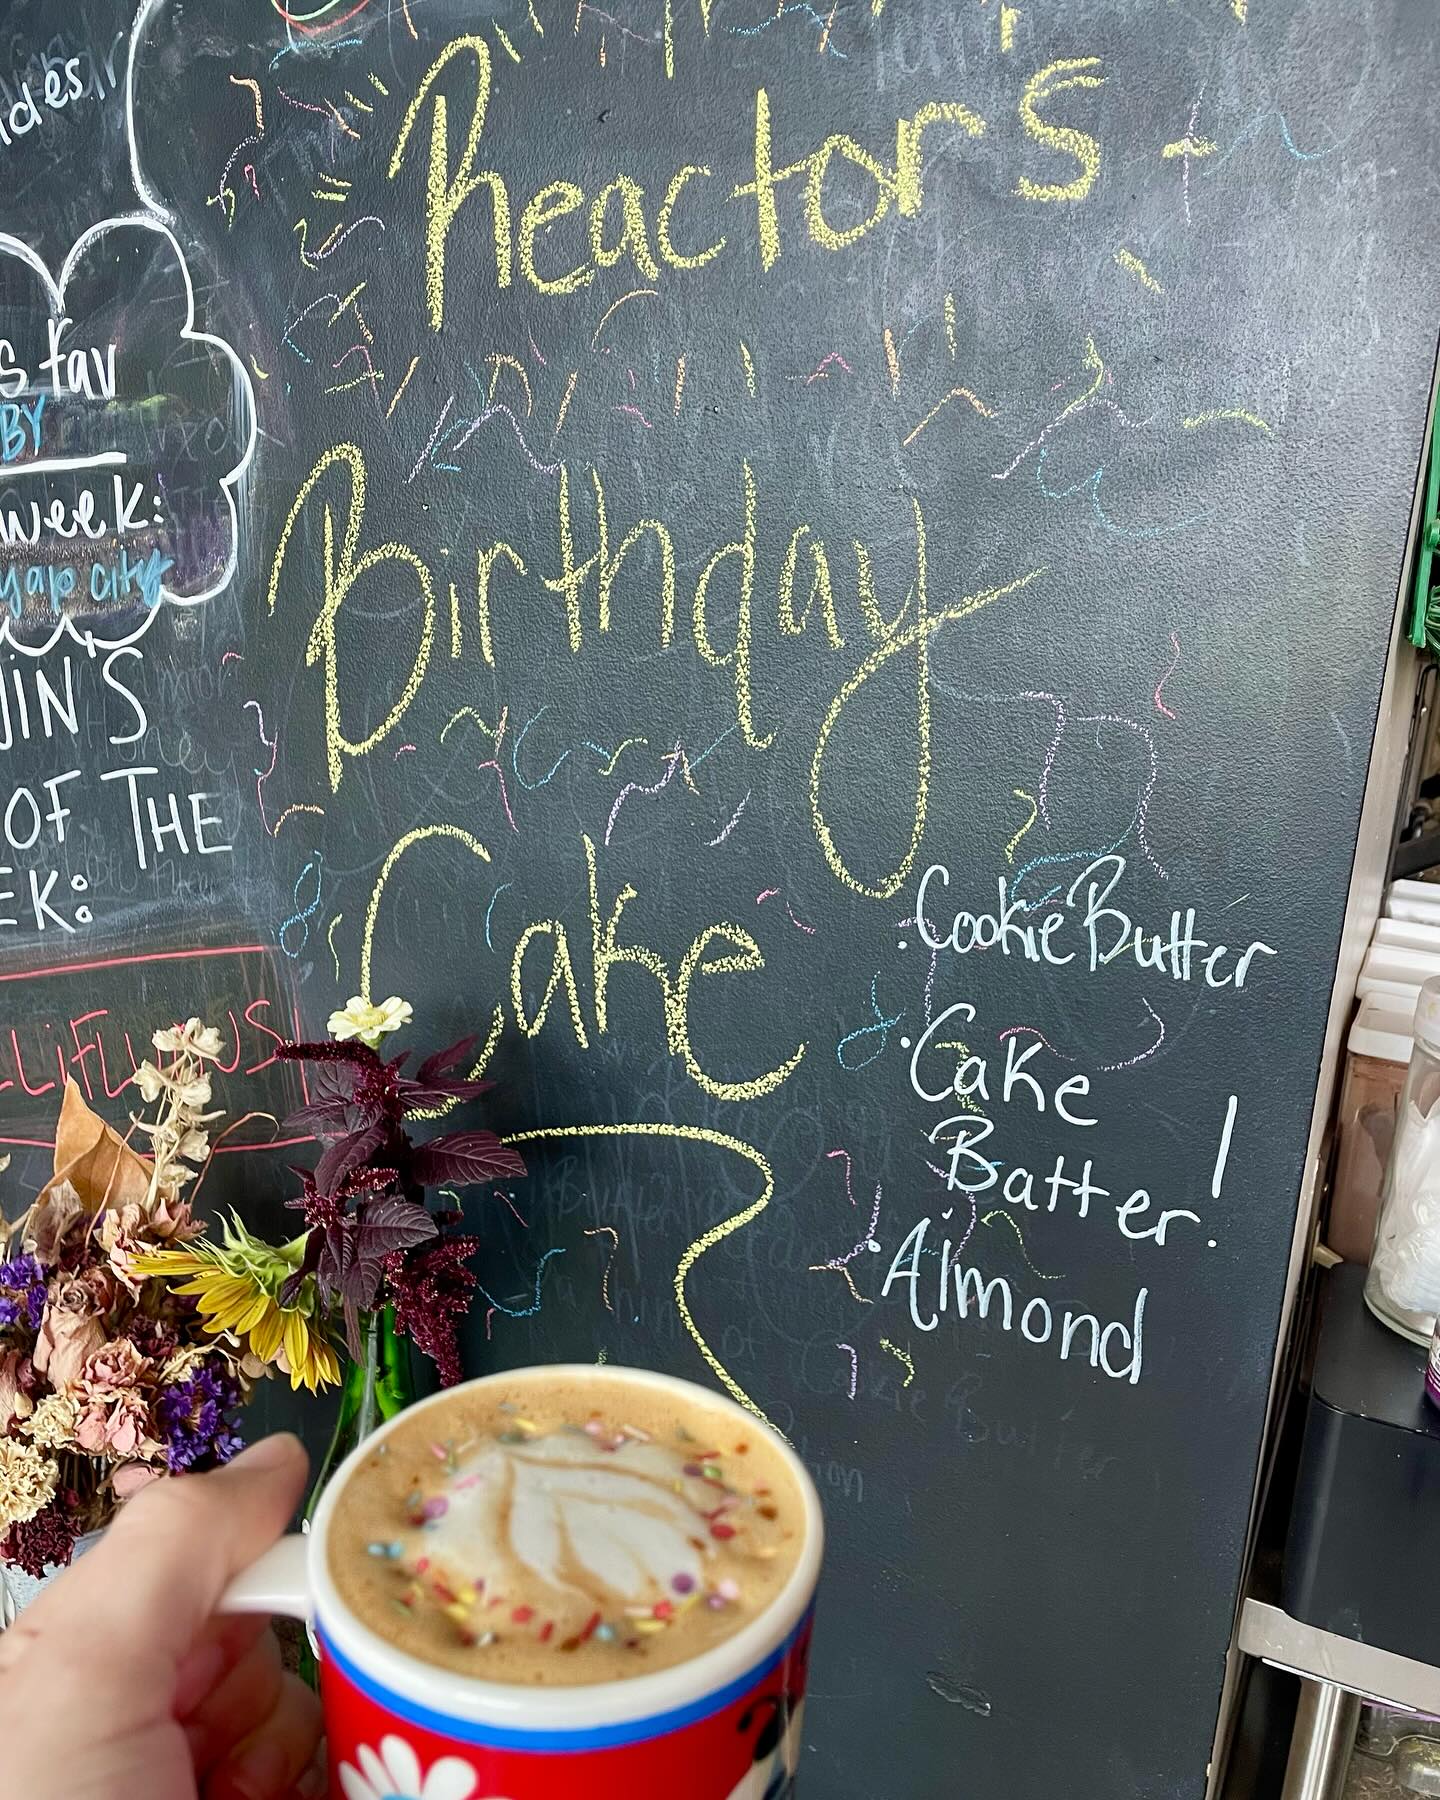 s fav
BY
week:
yap city
JIN'S
OF THE
EK:
LLiFLUOUS
Reactor's
Birthday
Cake
• Cookie Butter
• Cake
Batter!
• Almond